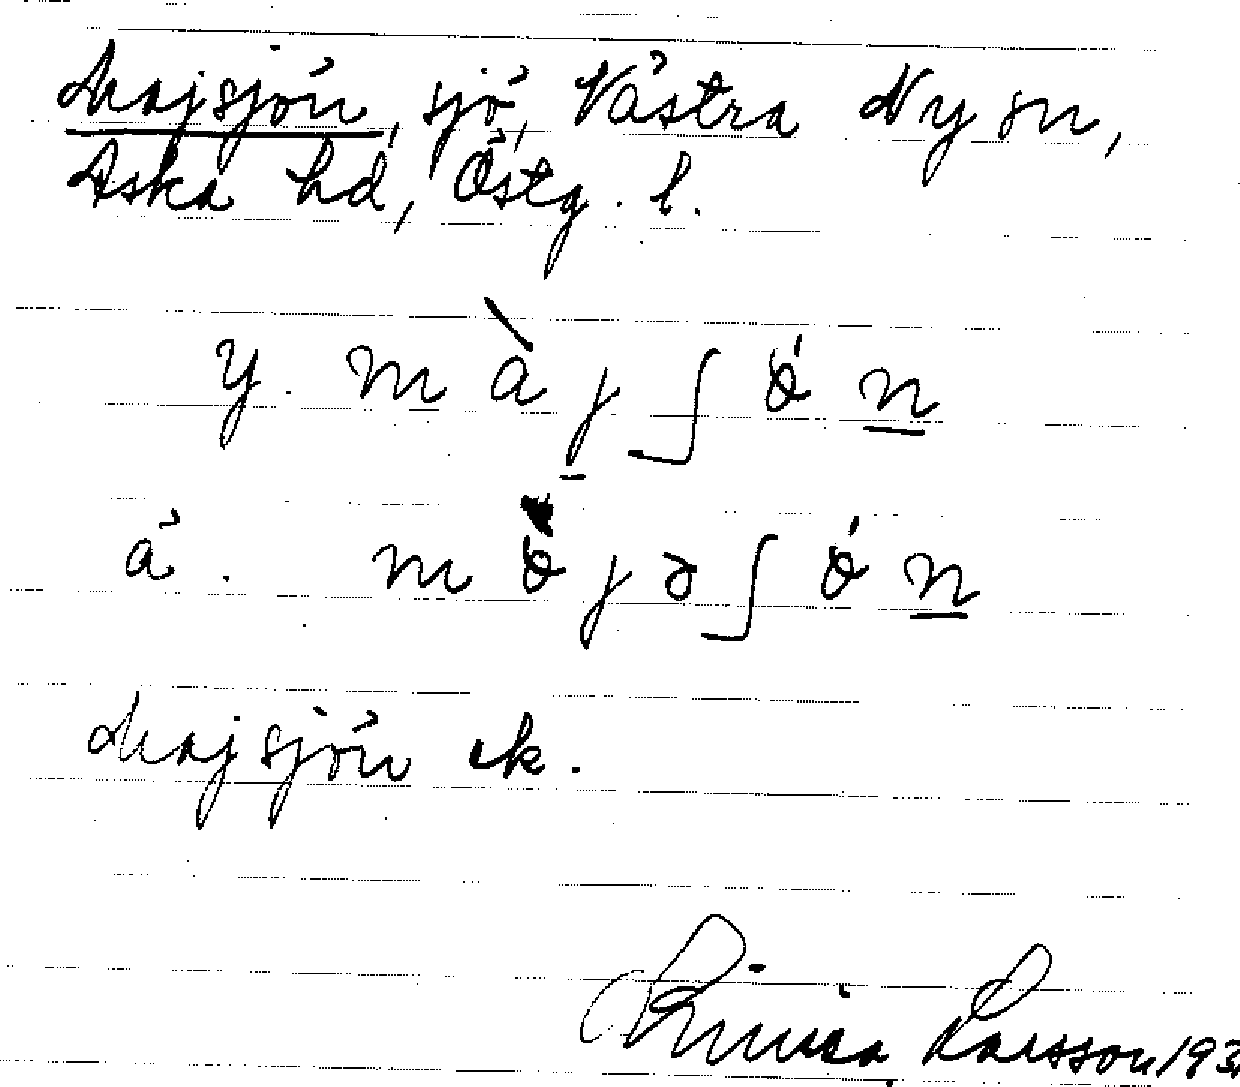 Majsjön, sjö, Västra Ny sn,
Aska hd, Östg. l.
y. m à j ʃ ǿ n
ä. m ø̀ j ə ʃ ǿ n
Majsjön ek.
Larsson 193